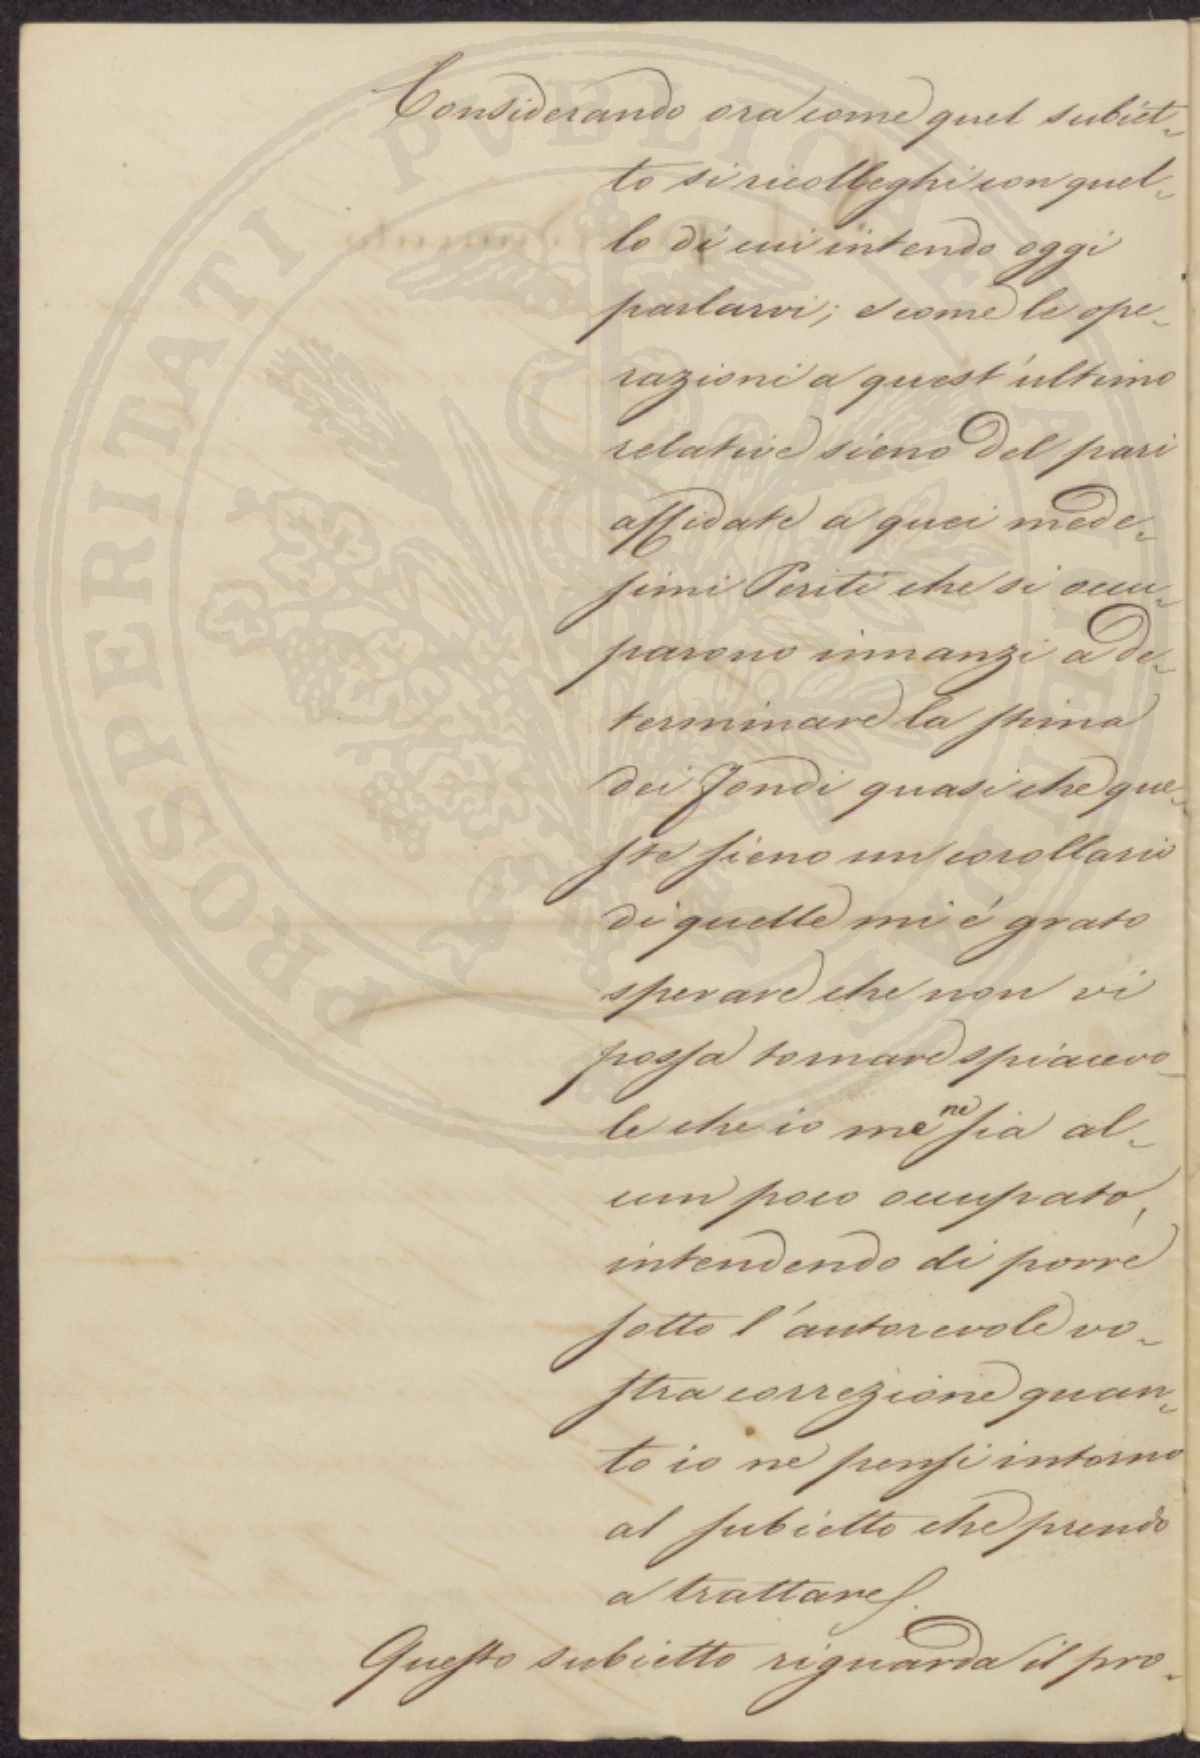 Considerando ora come quel subiet-
to si ricolleghi con quel-
lo di cui intendo oggi
parlarvi; e come le ope-
razioni a quest'ultimo
relative sieno del pari
affidate a quei mede-
simi Periti che si occu-
parono innanzi a de-
terminare la stima
dei fondi quasi che que-
ste sieno un corollario
di quelle mi é grato
sperare che non vi
possa tornare spiacevo-
le che io me ne sia al-
cun poco occupato,
intendendo di porre
sotto l'autorevole vo-
stra correzione quan-
to io ne pensi intorno
al subietto che prendo
a trattare.
Questo subietto riguarda il pro-
PROSPERITATI PVBLICAE AVGENDAE